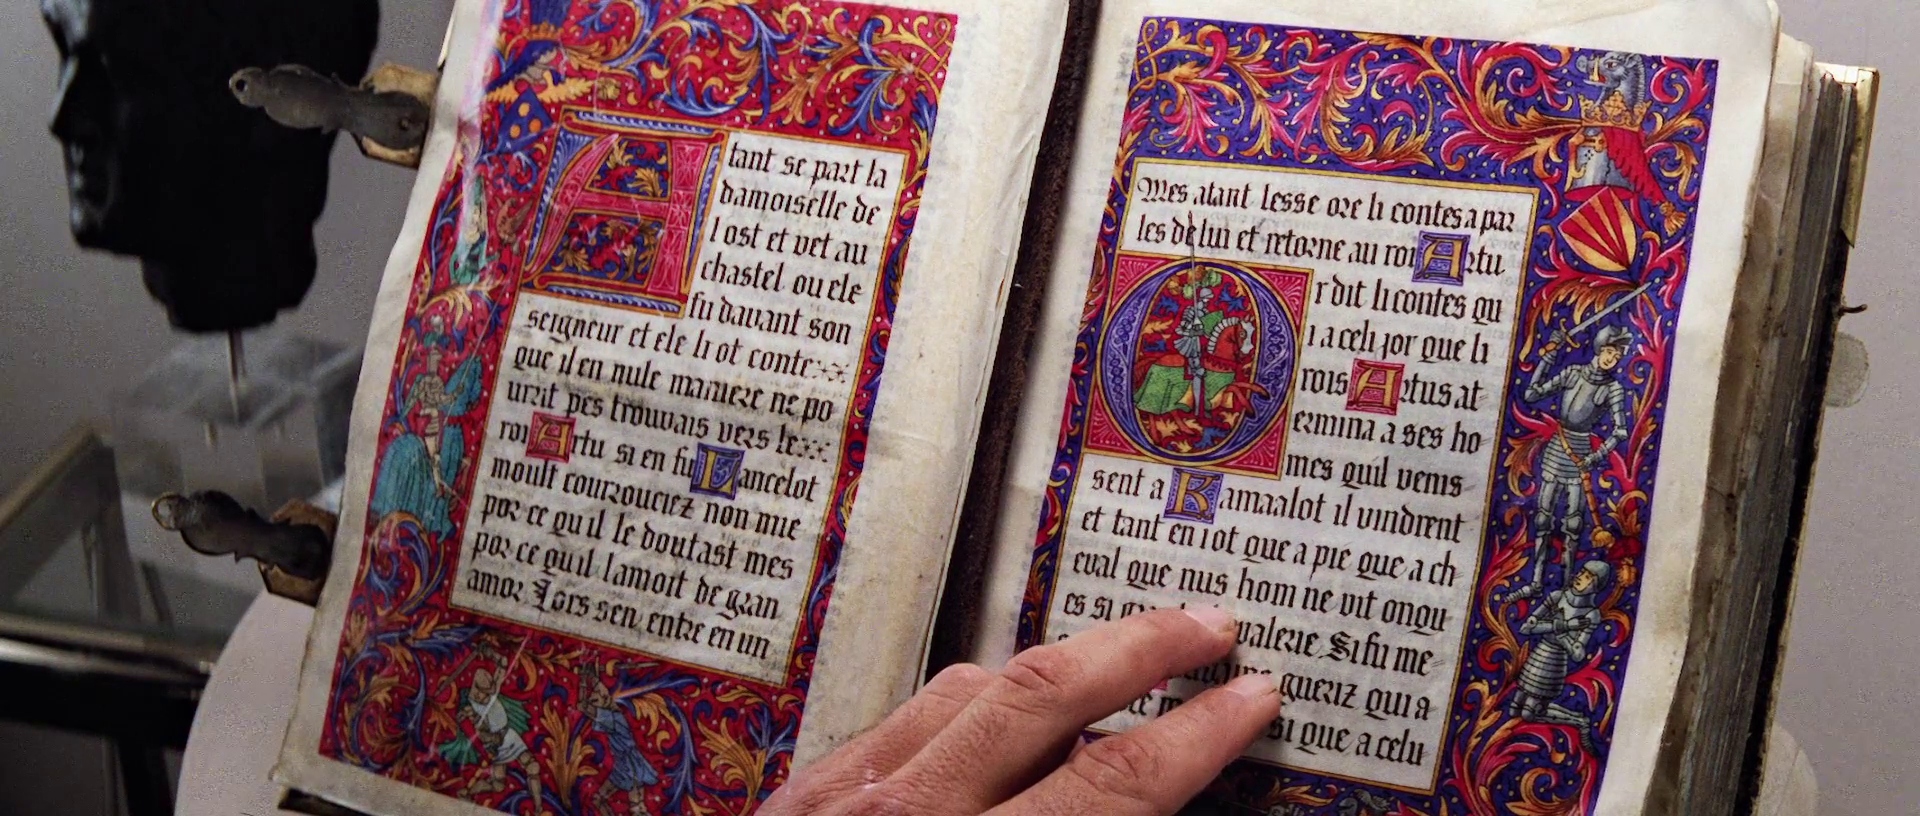 Atant se part la
damoiselle de
l ost et vet au
chastel ou ele
fu davant son
seigneur et ele li ot conte
que il en nule maniere ne po
urrit pes trouvais vers le
roi Artu si en fu Lancelot
moult courouciez non mie
por ce qu il le doutast mes
por ce quil lamoit de gran
amor Lors sen entre en un
Mes atant lesse ore li contes a par
les de lui et retorne au roi Artu
Or dit li contes qu
i a celi jor que li
rois Artus at
ermina a ses ho
mes quil venis
sent a Kamaalot il vindrent
et tant en i ot que a pie que a ch
eval que nus hom ne vit onqu
es si valerie Si fu me
queriz qui a
si que a celu